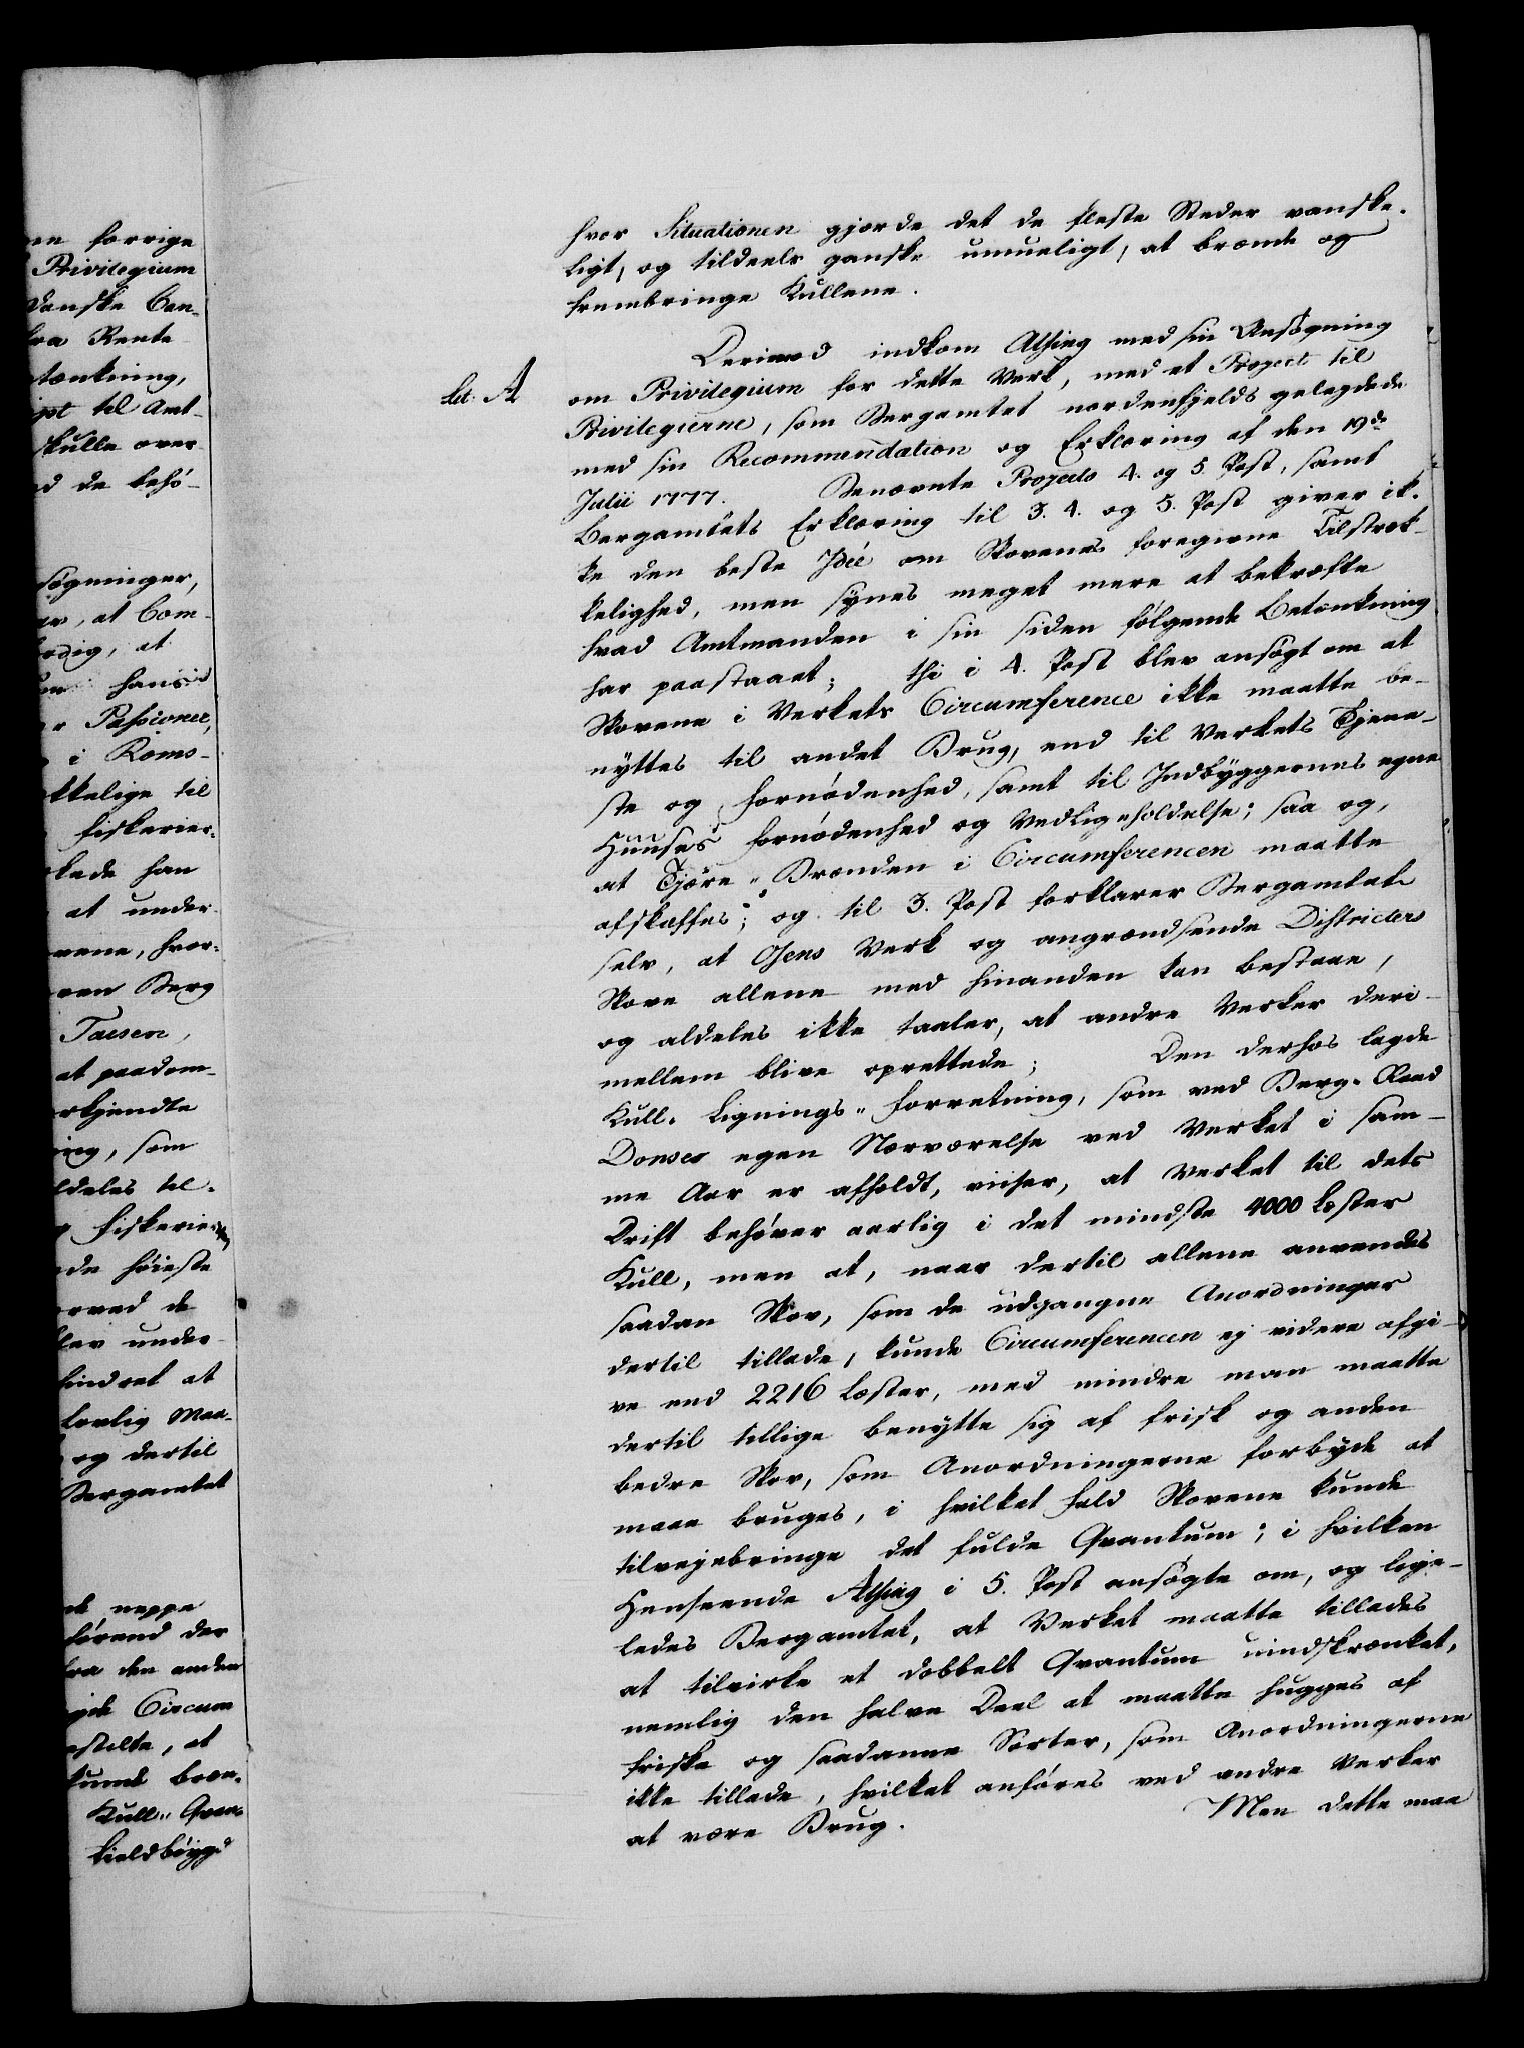 en forrige
Privilegium
danske Can-
fra Rente
tænkning,
igst til Amt-
skulle over
ed de behö-
søgninger,
er, at Com-
at
hans
Passioner,
i Roms-
kkelige til
fiskerier.
kede han
at under-
vene, hvor-
ven Berg
Taesen,
at paadøm-
rkjendte
ing, som
ldeles til-
fiskerie
de höieste
rved de
blev under
hindret at
lovlig Maa-
og dertil
Bergamtet
de neppe
förend der
fra den anden
Circum
stilte, at
kunde bræn-
Kull- Qvan-
Fieldbøygd
hvor Situationen gjorde det de fleste Steder vanske-
ligt, og tildeels ganske umueligt, at brænde og
frembringe Kullene.
Lit: A
Derimod indkom Alsing med sin Ansøgning
om Privilegium for dette Verk, med et Project til
Privilegierne, som Bergamtet nordenfjelds gelejdede
med sin Recommendation og Erklæring af den 19de
Julii 1777. Benævnte Projects 4. og 5 Post, samt
Bergamtets Erklæring til 3. 4. og 5. Post giver ik-
ke den beste Idée om Skovenes foregivne Tilstræk-
kelighed, men synes meget mere at bekræfte
hvad Amtmanden i sin siden følgende Betænkning
har paastaaet; thi i 4. Post blev ansøgt om at
Skovene i Verkets Circumference ikke maatte be-
nyttes til andet Brug, end til Verkets Tjene-
ste og fornødenhed, samt til Indbyggernes egne
Huuses fornødenhed og Vedligeholdelse; saa og,
at Tjære-Brænden i Circumferencen maatte
afskaffes; og til 3. Post forklarer Bergamtet
selv, at Osens Verk og angrændsende Districters
Skove allene med hinanden kan bestaae,
og aldeles ikke taaler, at andre Verker deri-
mellem blive oprettede; Den derhos lagde
Kull- Lignings- forretning, som ved Berg-Raad
Donses egen Nærværelse ved Verket i sam-
me Aar er afholdt, viiser, at Verket til dets
Drift behøver aarlig i det mindste 4000 Læster
Kull, men at, naar dertil allene anvendes
saadan Skov, som de udgangne Anordninger
dertil tillade, kunde Circumferencen ej videre afgi-
ve end 2216 Læster, med mindre man maatte
dertil tillige benytte sig af frisk og anden
bedre Skov, som Anordningerne forbyde at
maae bruges, i hvilket fald Skovene kunde
tilvejebringe det fulde Qvantum; i hvilken
Henseende Alsing i 5. Post ansøgte om, og lige-
ledes Bergamtet, at Verket maatte tillades
at tilvirke et dobbelt Qvantum uindskrænket,
nemlig den halve Deel at maatte hugges af
friske og saadanne Sorter, som Anordningerne
ikke tillade, hvilket anføres ved andre Verker
at være Brug. Men dette maa